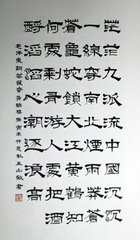 茫茫九派流中國沉沉
一線穿南北煙雨莽蒼
蒼龜蛇鎖大江黃鶴知
何去剩有遊人處把酒
酹滔滔心潮逐浪高
毛澤東詞菩薩蠻黃鶴樓